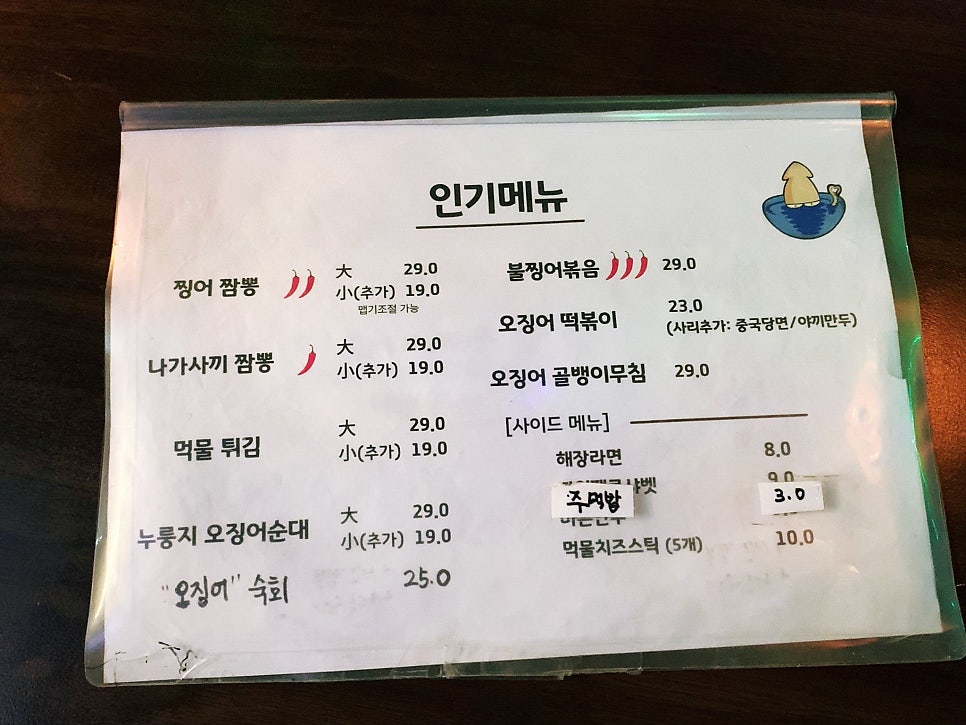 인기메뉴
찡어 짬뽕 大 29.0
小(추가) 19.0
맵기조절 가능
나가사끼 짬뽕 大 29.0
小(추가) 19.0
먹물 튀김 大 29.0
小(추가) 19.0
누룽지 오징어순대 大 29.0
小(추가) 19.0
"오징어" 숙회 25.0
불찡어볶음 29.0
오징어 떡볶이 23.0
(사리추가: 중국당면/야끼만두)
오징어 골뱅이무침 29.0
[사이드 메뉴]
해장라면 8.0
9.0
주먹밥 3.0
먹물치즈스틱 (5개) 10.0